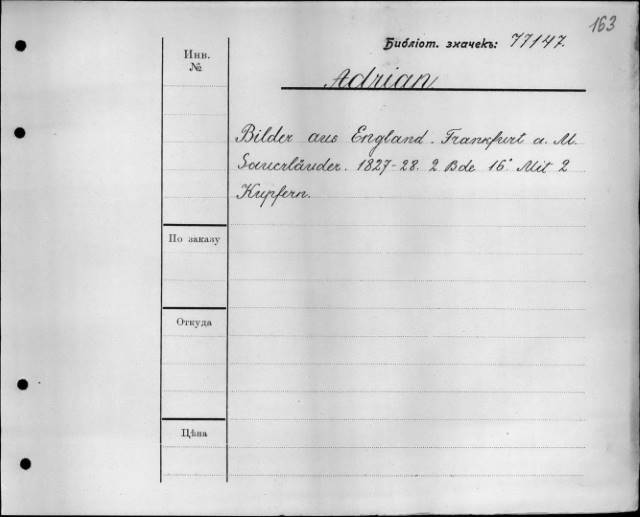 163
Библіот. значекъ: 77147.
Инв.
№
Adrian
Bilder aus England. Frankfurt a. M.
Sauerländer. 1827-28. 2 Bde 16° Mit 2
Kupfern.
По заказу
Откуда
Цѣна